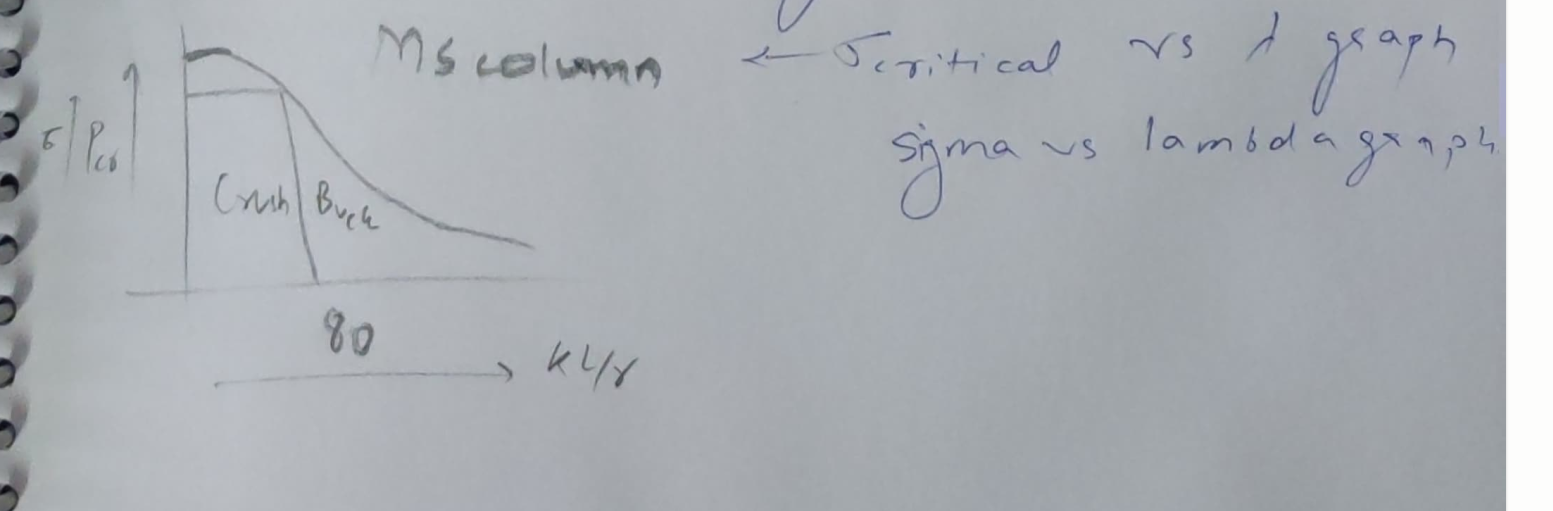 MS column
← σcritical vs λ graph
sigma vs lambda graph
σ/Pcr ↑
Crush Buck
80
→ KL/r